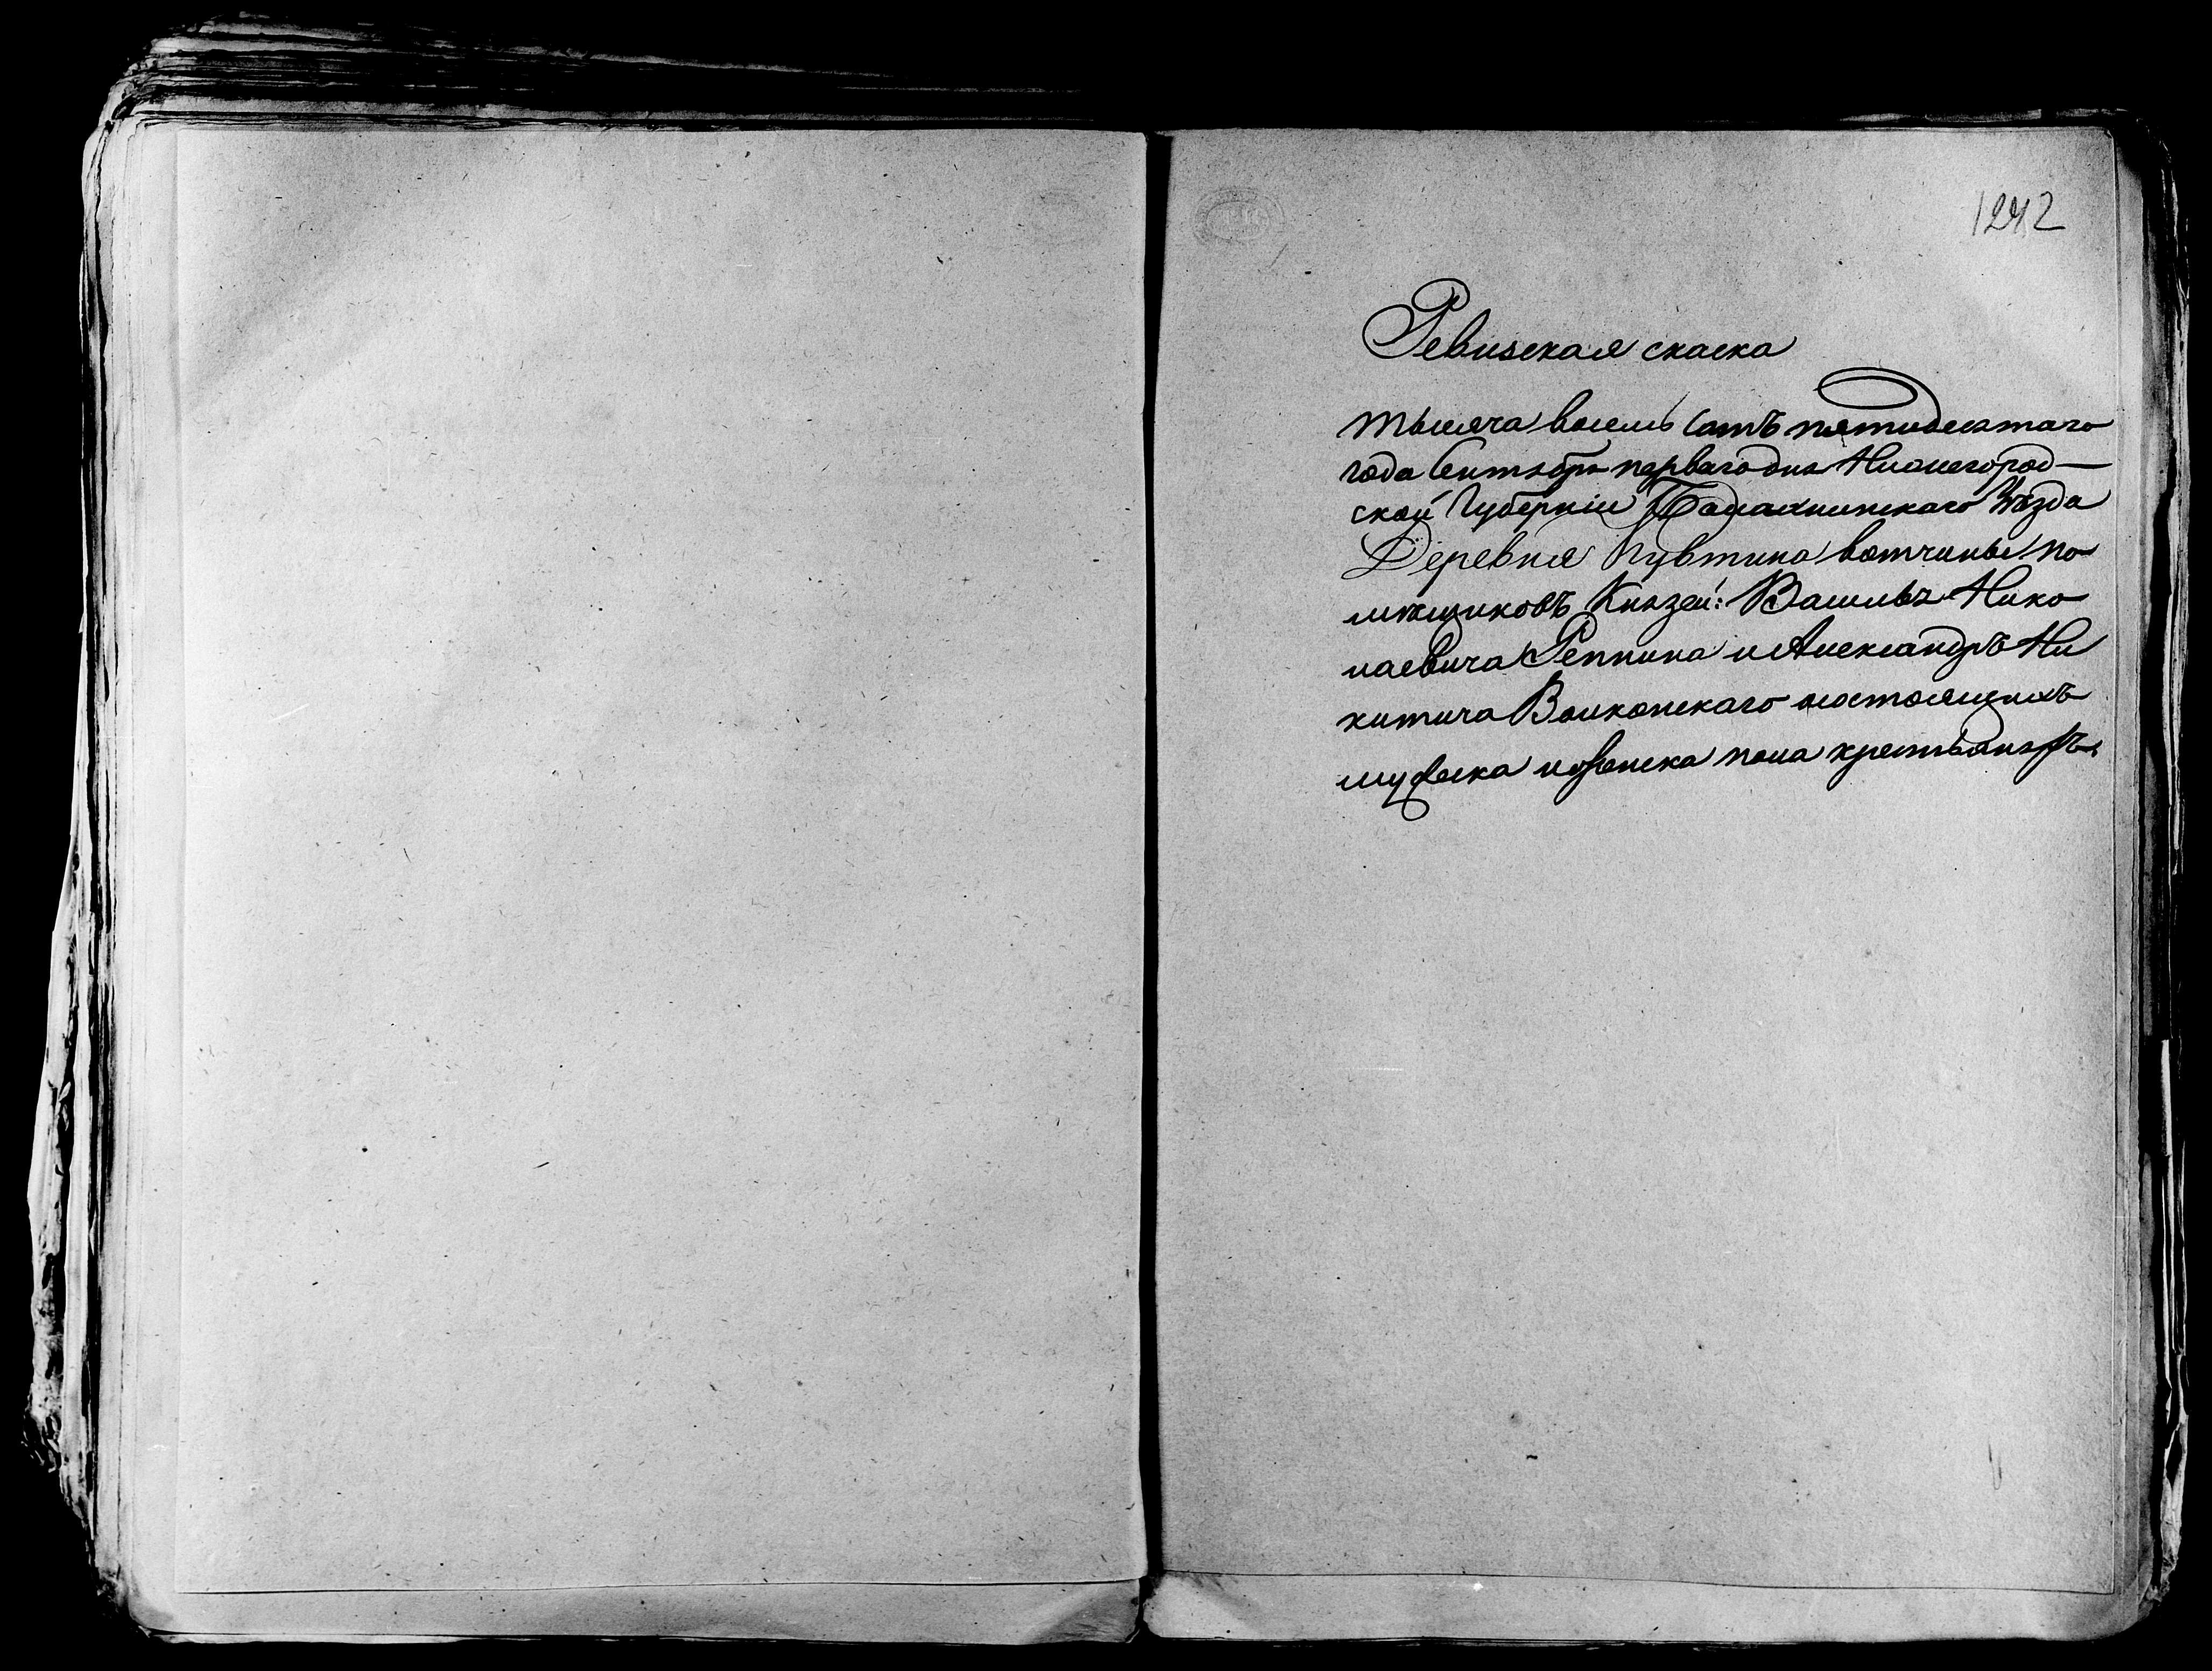 1242
Ревизская скаска
тысяча восемь сотъ пятидесятаго
года Сентября перваго дня Нижегород—
ской Губерніи Балахнинскаго Уѣзда
Деревня вотчины по
мѣщиковъ Князей: Василья Нико
лаевича Репнина и Александръ Ни
китича Волконскаго о состоящихъ
мужеска и женска пола крестьянахъ